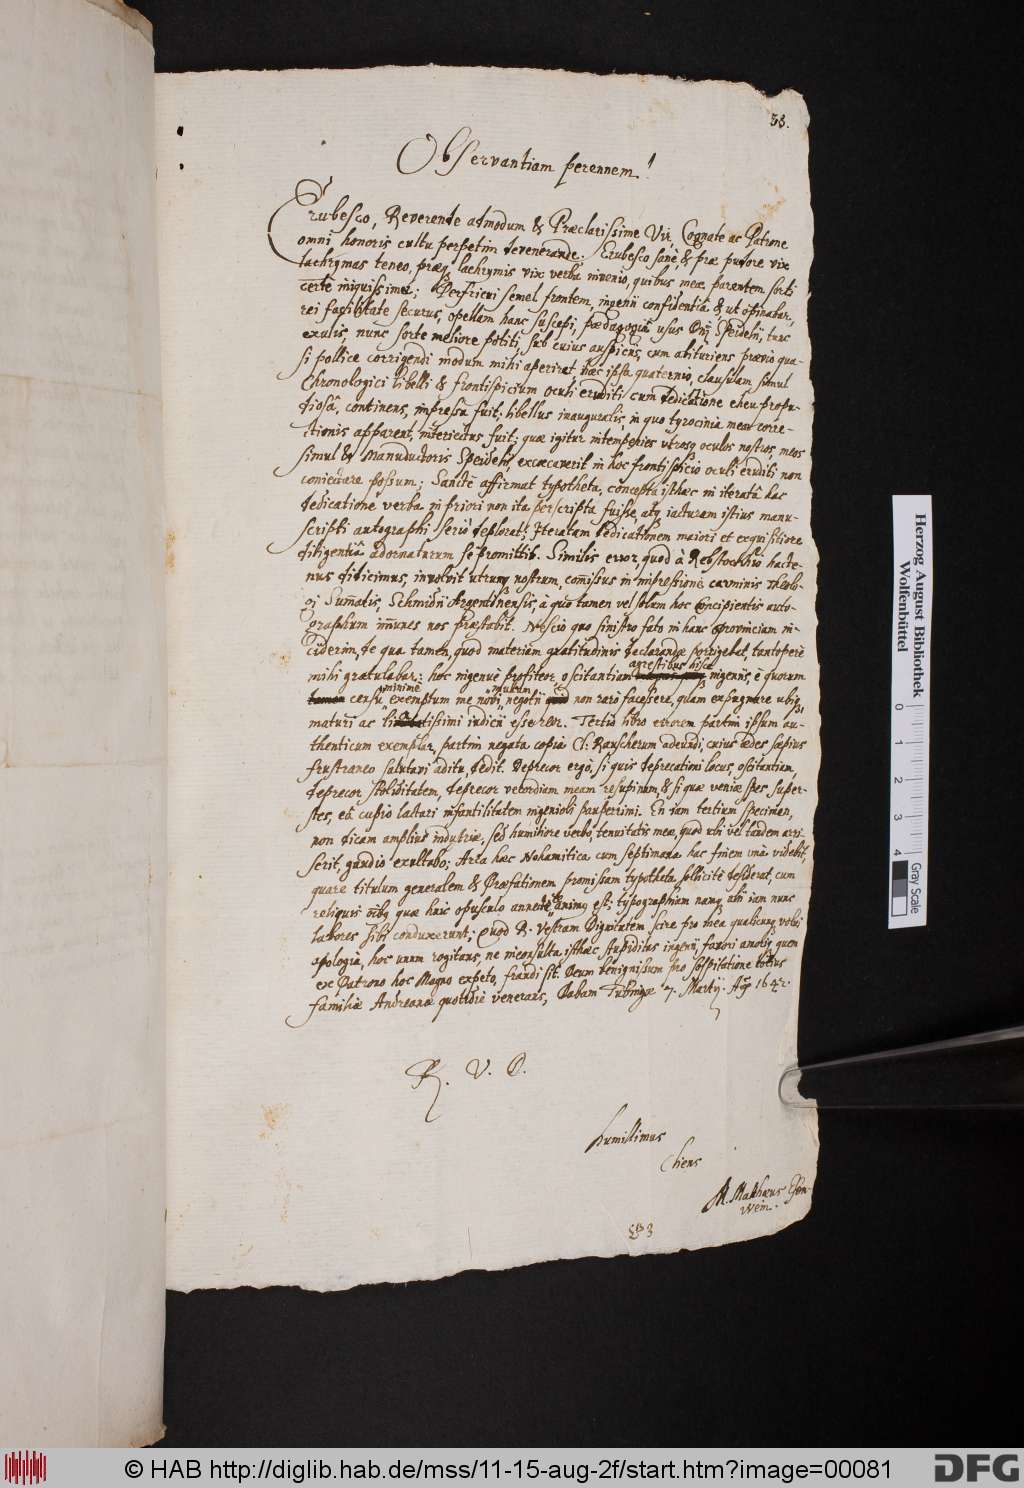 38.
Observantiam perennem!
Erubesco, Reverende admodum & Præclarissime Vir, Cognate ac Patrone
omni honoris cultu perpetim devenerande. Erubesco sane, & præ pudore vix
lachrymas teneo, præq lachrymis vix verba invenio, quibus meæ parentem sorti
certe iniquissimæ; Perfricui semel frontem, ingenii confidentiâ & ut opinabar,
rei facilitate securus, opellam hanc suscepi, pædagogiâ usus Dnj Speidelij, tunc
exulis, nunc sorte meliore potiti, sub cuius auspicijs, cum abituriens prævio qua-
si pollice corrigendi modum mihi aperirat, hæc ipsa quaternio, clausulam simul
Chronologici libelli & frontispicium Oculi eruditi cum dedicatione eheu propu-
diosâ, continens, impressa fuit; libellus inauguralis, in quo tyrocinia mea corre-
ctionis apparent, interiectus fuit; quæ igitur intemperies utrosq oculos nostros, meos
simul & Manuductoris Speidelij, excæcaverit in hoc frontispicio oculi eruditi non
coniectare possum; Sanctè affirmat typotheta, concepta isthæc in iteratâ hac
dedicatione verba in priori non ita perscripta fuisse, atq iacturam istius manu-
scripti autographi serio deplorat; Iteratam dedicationem maiori et exquisitiore
diligentiâ adornaturum se promittit. Similis error, quod à Rebstockhio hacte-
nus didicimus, involvit utrumq nostrum, com̃issus in impressione carminis Theolo-
gi Sum̃atis, Schmidij Argentinensis, à quo tamen vel solum hoc Concipientis auto-
graphum im̃unes nos præstabit. Nescio quo sinistro fato in hanc provinciam in-
ciderim, de qua tamen, quod materiam gratitudinis declarandæ porrigebat, tantoperè
mihi gratulabar; hoc ingenuè profiteor, oscitantiam agrestibus hisce ingenijs, è quorum
censu minimè exemptum me novi, multum negotij non rarò facessere, quam expugnare ubiq
maturi ac tissimi iudicij esse reor. Tertio libro errorem partim ipsum au-
thenticum exemplar, partim negata copia Cl. Rauscherum adeundi, cuius ædes sæpius
frustraneo salutavi aditu, dedit. Deprecor ergò, si quis deprecationi locus, oscitantiam,
deprecor stoliditatem, deprecor vecordiam meam resupinam, & si quæ veniæ spes, super-
stes, eâ cupio lactari infantilitatem ingenioli pauperrimi. En iam tertium specimen,
non dicam amplius industriæ, sed humiliore verbo, tenuitatis meæ, quod ubi vel tandem arri-
serit, gaudio exultabo; Arca hæc Nohamitica cum septimana hac finem unà videbit,
quare titulum generalem & Præfationem promissam typotheta sollicitè desiderat, cum
reliquis oibq quæ huic opusculo annectere animq est; typographiam namq alii iam nunc
labores sibi conduxerunt; Quod R. Vestram Dignitatem scire pro mea qualicunq volui
apologiâ, hoc unum rogitans, ne inconsulta isthæc stupiditas ingenij, favori amoriq quem
ex Patrono hoc Magno expeto, fraudi sit. Deum benignissum pro sospitatione totius
familiæ Andreanæ quotidiè venerans, Dabam Tubingæ 7. Martij. Aõ 1642.
R. V. D.
humillimus
Cliens
M. Matthæus Esen-
wein.
Herzog August Bibliothek
Wolfenbüttel
0 1 2 3 4
Gray Scale
© HAB http://diglib.hab.de/mss/11-15-aug-2f/start.htm?image=00081
DFG